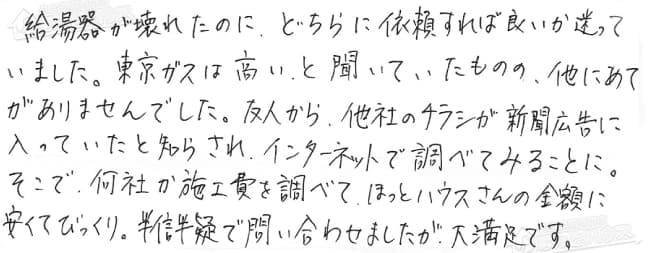 給湯器が壊れたのに、どちらに依頼すれば良いか迷って
いました。東京ガスは高い、と聞いていたものの、他にあて
がありませんでした。友人から、他社のチラシが新聞広告に
入っていたと知らされ、インターネットで調べてみることに。
そこで、何社か施工費を調べて、ほっとハウスさんの金額に
安くてびっくり。半信半疑で問い合わせましたが、大満足です。